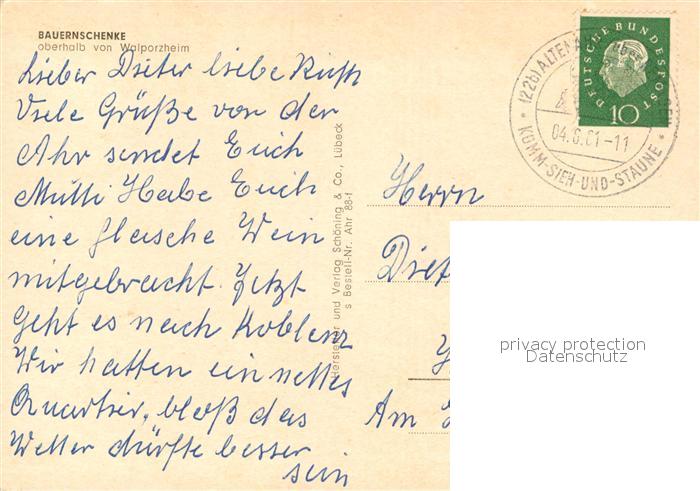 BAUERNSCHENKE
oberhalb von Walporzheim
Lieber Dieter liebe Ruth
Viele Grüße von der
Ahr sendet Euch
Mutti Habe Euch
eine flasche Wein
mitgebracht. Jetzt
geht es nach Koblenz
Wir hatten ein nettes
Quartier, bloß das
Wetter dürfte besser
sein
Hersteller und Verlag Schöning & Co., Lübeck
s Bestell-Nr. Ahr 88-f
DEUTSCHE BUNDESPOST
10
(22b) ALTENA
04.6.61-11
KOMM-SIEH-UND-STAUNE
Herrn
Diet
Am
privacy protection
Datenschutz